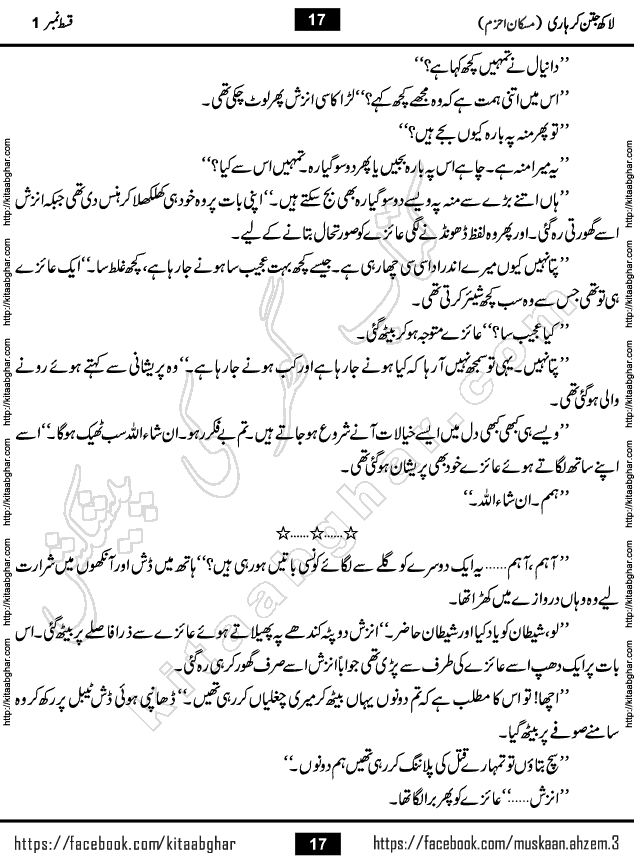 لاکھ جتن کر ہاری (مسکان احزم)
17
قسط نمبر 1
’’دانیال نے تمہیں کچھ کہا ہے؟‘‘
’’اس میں اتنی ہمت ہے کہ وہ مجھے کچھ کہے؟‘‘ لڑاکا سی انزش پھر لوٹ چکی تھی۔
’’تو پھر منہ پہ بارہ کیوں بجے ہیں؟‘‘
’’یہ میرا منہ ہے۔ چاہے اس پہ بارہ بجیں یا پھر دو سو گیارہ۔ تمہیں اس سے کیا؟‘‘
’’ہاں اتنے بڑے سے منہ پہ ویسے دو سو گیارہ بھی بج سکتے ہیں۔‘‘ اپنی بات پر وہ خود ہی کھلکھلا کر ہنس دی تھی جبکہ انزش
اسے گھورتی رہ گئی۔ اور پھر وہ لفظ ڈھونڈنے لگی عائزے کو صورتحال بتانے کے لیے۔
’’پتا نہیں کیوں میرے اندر اداسی سی چھا رہی ہے۔ جیسے کچھ بہت عجیب سا ہونے جا رہا ہے، کچھ غلط سا۔‘‘ ایک عائزے
ہی تو تھی جس سے وہ سب کچھ شیئر کرتی تھی۔
’’کیا عجیب سا؟‘‘ عائزے متوجہ ہو کر بیٹھ گئی۔
’’پتا نہیں۔ یہی تو سمجھ نہیں آ رہا کہ کیا ہونے جا رہا ہے اور کب ہونے جا رہا ہے۔‘‘ وہ پریشانی سے کہتے ہوئے رونے
والی ہو گئی تھی۔
’’ویسے ہی کبھی کبھی دل میں ایسے خیالات آنے شروع ہو جاتے ہیں۔ تم بے فکر رہو۔ ان شاء اللہ سب ٹھیک ہوگا۔‘‘ اسے
اپنے ساتھ لگاتے ہوئے عائزے خود بھی پریشان ہو گئی تھی۔
’’ہمم۔ ان شاء اللہ۔‘‘
☆......☆......☆
’’آہم، آہم...... یہ ایک دوسرے کو گلے سے لگائے کونسی باتیں ہو رہی ہیں؟‘‘ ہاتھ میں ڈش اور آنکھوں میں شرارت
لیے وہ وہاں دروازے میں کھڑا تھا۔
’’لو، شیطان کو یاد کیا اور شیطان حاضر۔‘‘ انزش دوپٹہ کندھے پہ پھیلاتے ہوئے عائزے سے ذرا فاصلے پر بیٹھ گئی۔ اس
بات پر ایک دھپ اسے عائزے کی طرف سے پڑی تھی جواباً انزش اسے صرف گھور کر ہی رہ گئی۔
’’اچھا! تو اس کا مطلب ہے کہ تم دونوں یہاں بیٹھ کر میری چغلیاں کر رہی تھیں۔‘‘ ڈھانپی ہوئی ڈش ٹیبل پر رکھ کر وہ
سامنے صوفے پر بیٹھ گیا۔
’’سچ بتاؤں تو تمہارے قتل کی پلاننگ کر رہی تھیں ہم دونوں۔‘‘
’’انزش......‘‘ عائزے کو پھر برا لگا تھا۔
http://kitaabghar.com
http://kitaabghar.com
http://kitaabghar.com
http://kitaabghar.com
http://kitaabghar.com
http://kitaabghar.com
http://kitaabghar.com
http://kitaabghar.com
http://kitaabghar.com
http://kitaabghar.com
http://kitaabghar.com
http://kitaabghar.com
کتاب گھر کی پیشکش
kitaabghar.com
https://facebook.com/kitaabghar
17
https://facebook.com/muskaan.ahzem.3